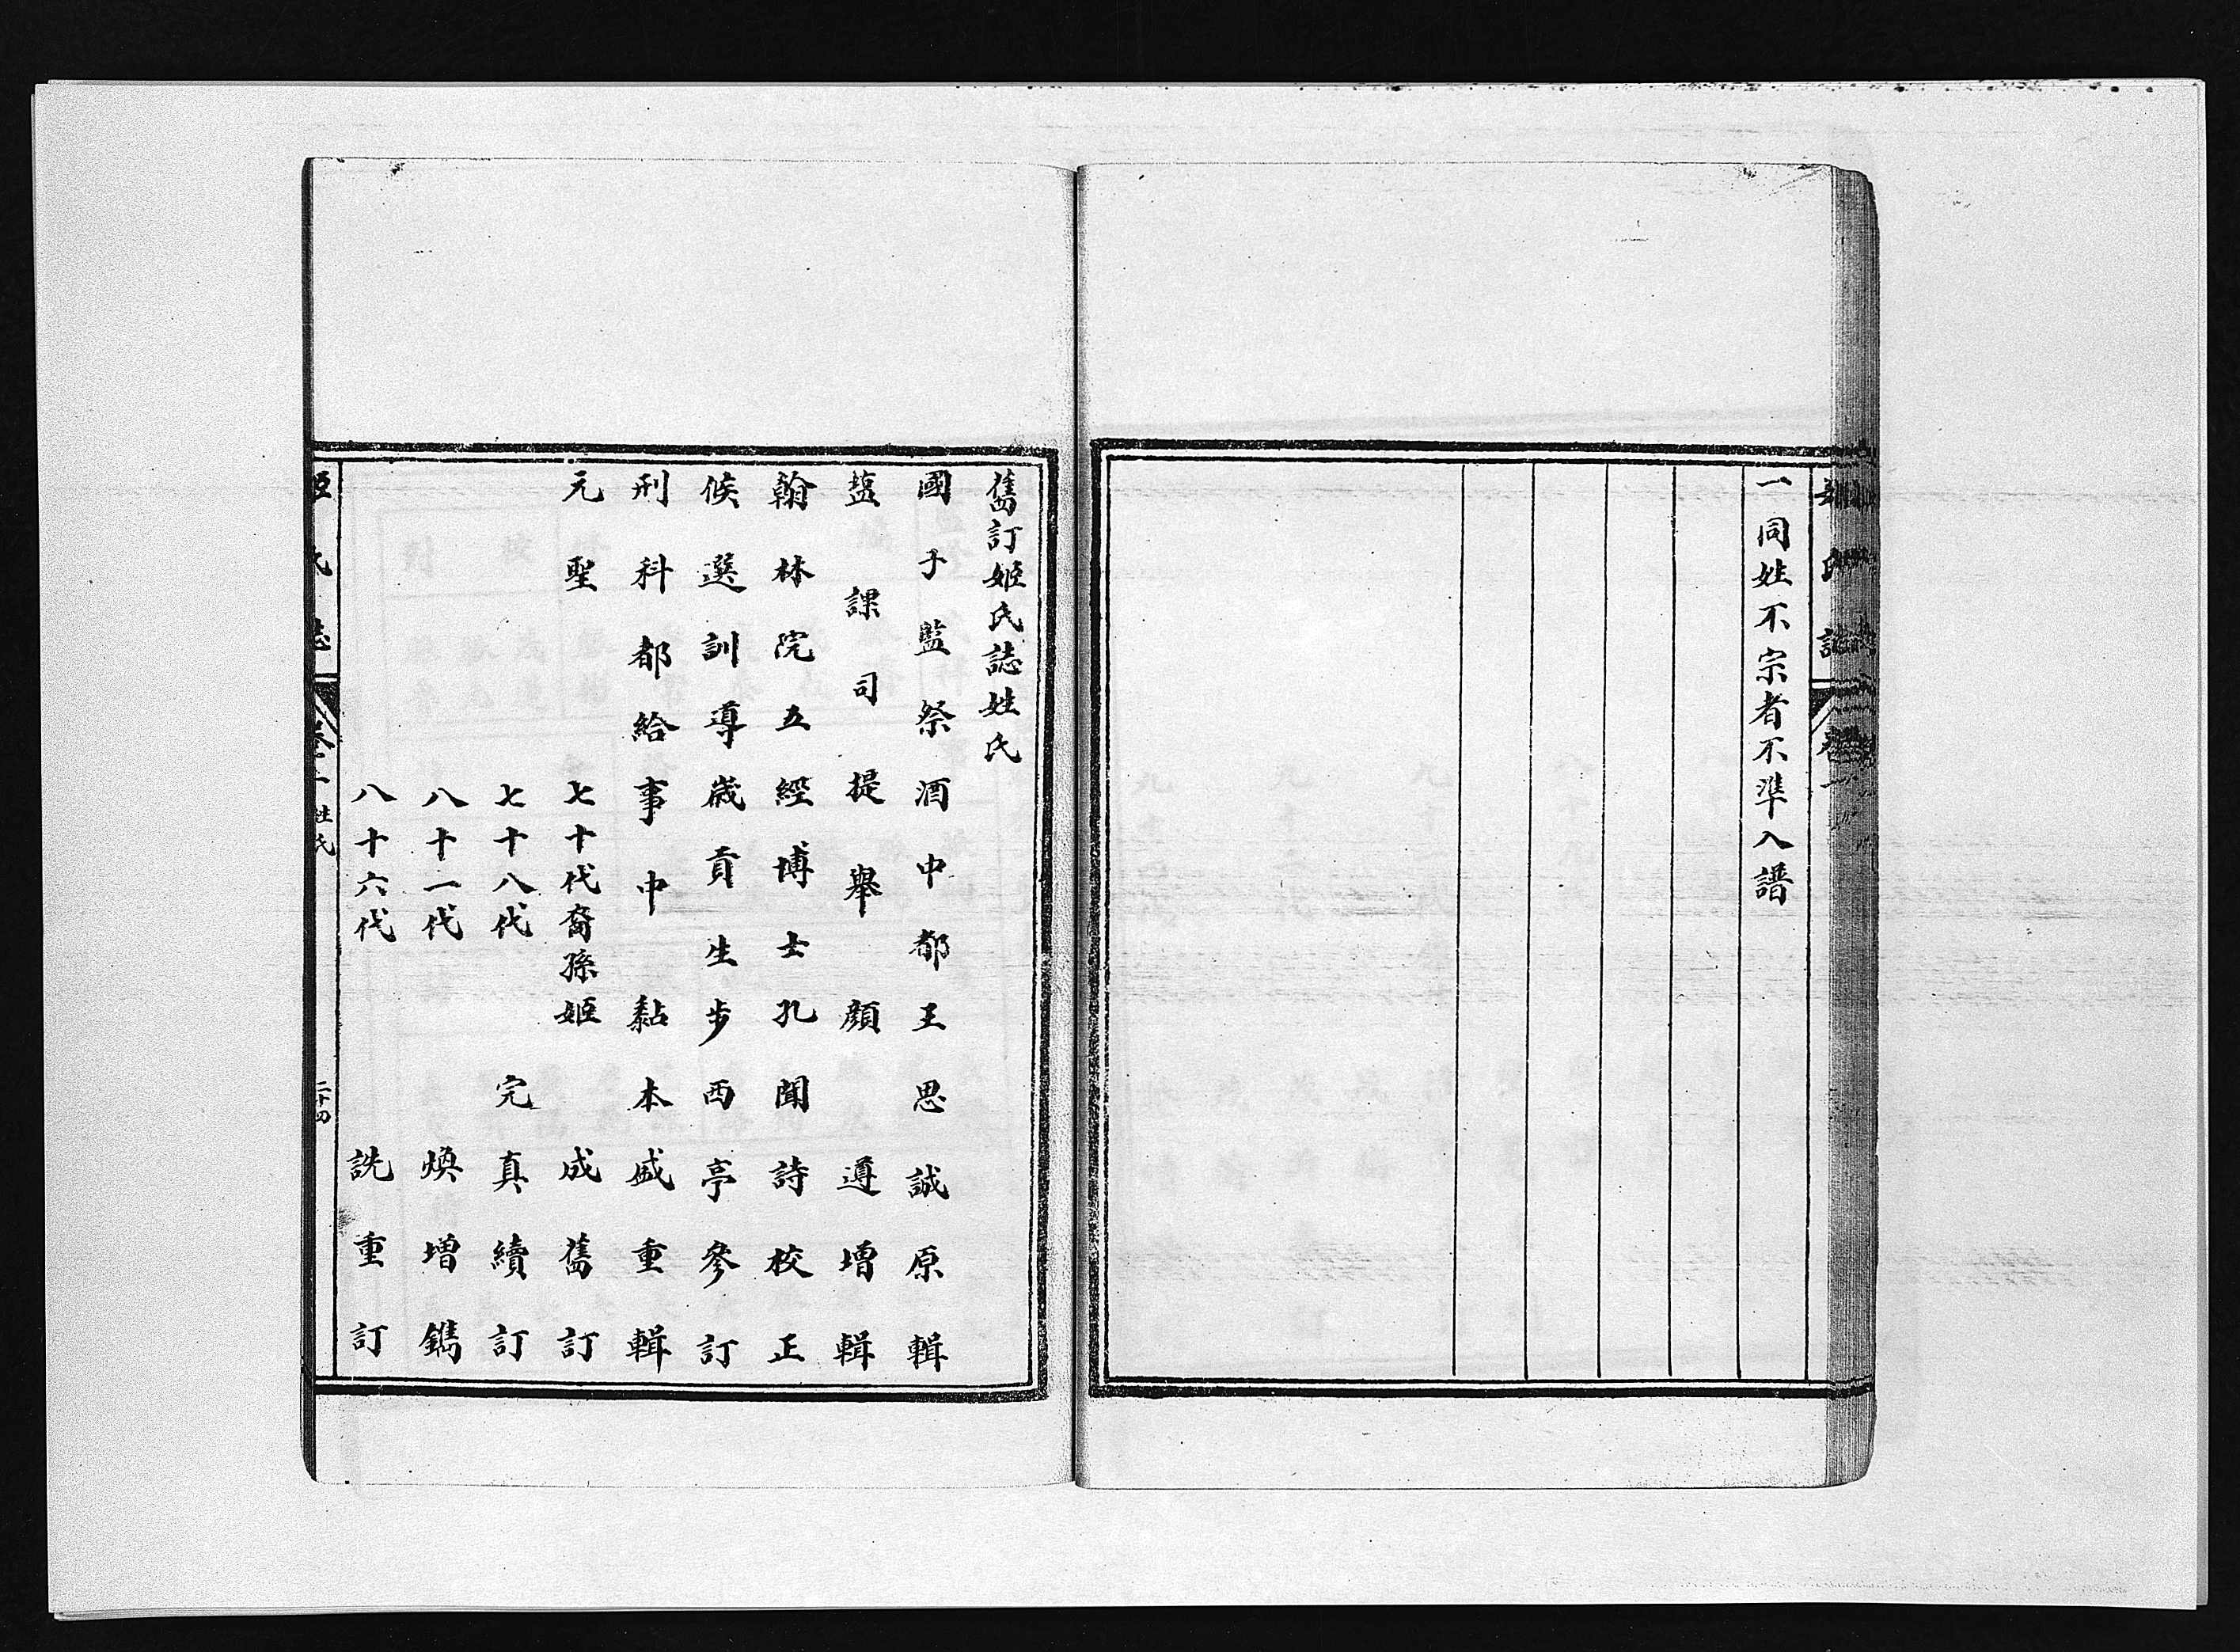 姬氏誌 卷一
一同姓不宗者不準入譜
舊訂姬氏誌姓氏
國子監祭酒中都王思誠原輯
鹽課司提舉顏遵增輯
翰林院五經博士孔聞詩校正
候選訓導歲貢生步西亭參訂
刑科都給事中黏本盛重輯
元聖七十代裔孫姬成舊訂
七十八代完真續訂
八十一代煥增鐫
八十六代詵重訂
姬氏誌 卷一 姓氏 二十四